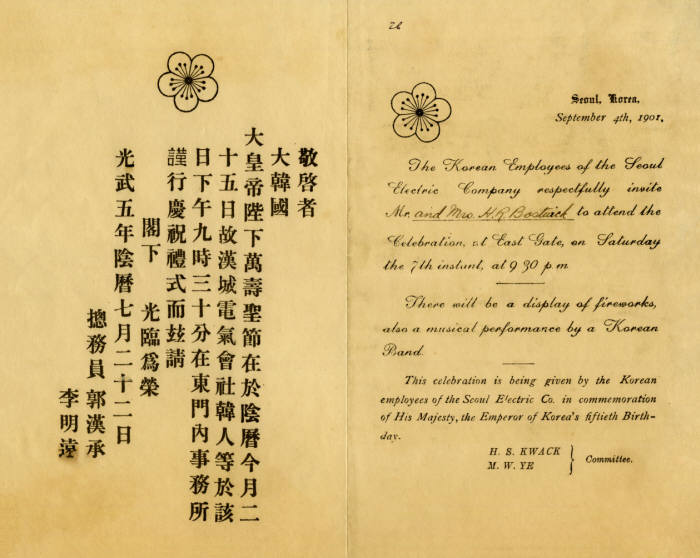 敬啓者
大韓國
大皇帝陛下萬壽聖節在於陰曆今月二
十五日故漢城電氣會社韓人等於該
日下午九時三十分在東門內事務所
謹行慶祝禮式而玆請
閣下 光臨爲榮
光武五年陰曆七月二十二日
摠務員 郭漢承
李明遠
26
Seoul, Korea.
September 4th, 1901.
The Korean Employees of the Seoul
Electric Company respectfully invite
Mr. and Mrs. H.R. Bostwick to attend the
Celebration, at East Gate, on Saturday
the 7th instant, at 9 30 p.m
There will be a display of fireworks,
also a musical performance by a Korean
Band.
This celebration is being given by the Korean
employees of the Seoul Electric Co. in commemoration
of His Majesty, the Emperor of Korea's fiftieth Birth-
day.
H. S. KWACK
M. W. YE
Committee.